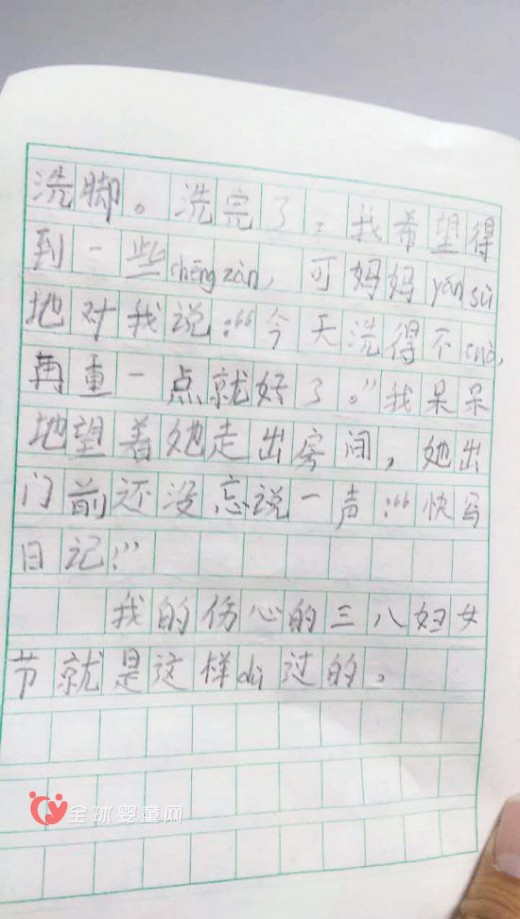 洗脚。洗完了，我希望得
到一些chēngzàn，可妈妈yánsù
地对我说：“今天洗得不cuò，
再重一点就好了。”我呆呆
地望着她走出房间，她出
门前还没忘说一声：“快写
日记！”
我的伤心的三八妇女
节就是这样dù过的。
全球婴童网